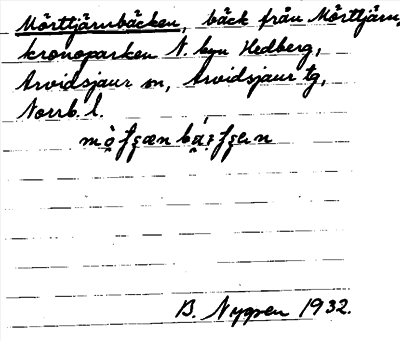 Mörttjärnbäcken, bäck från Mörttjärn,
kronoparken N. byn Hedberg,
Arvidsjaur sn, Arvidsjaur tg,
Norrb. l.
B. Nygren 1932.